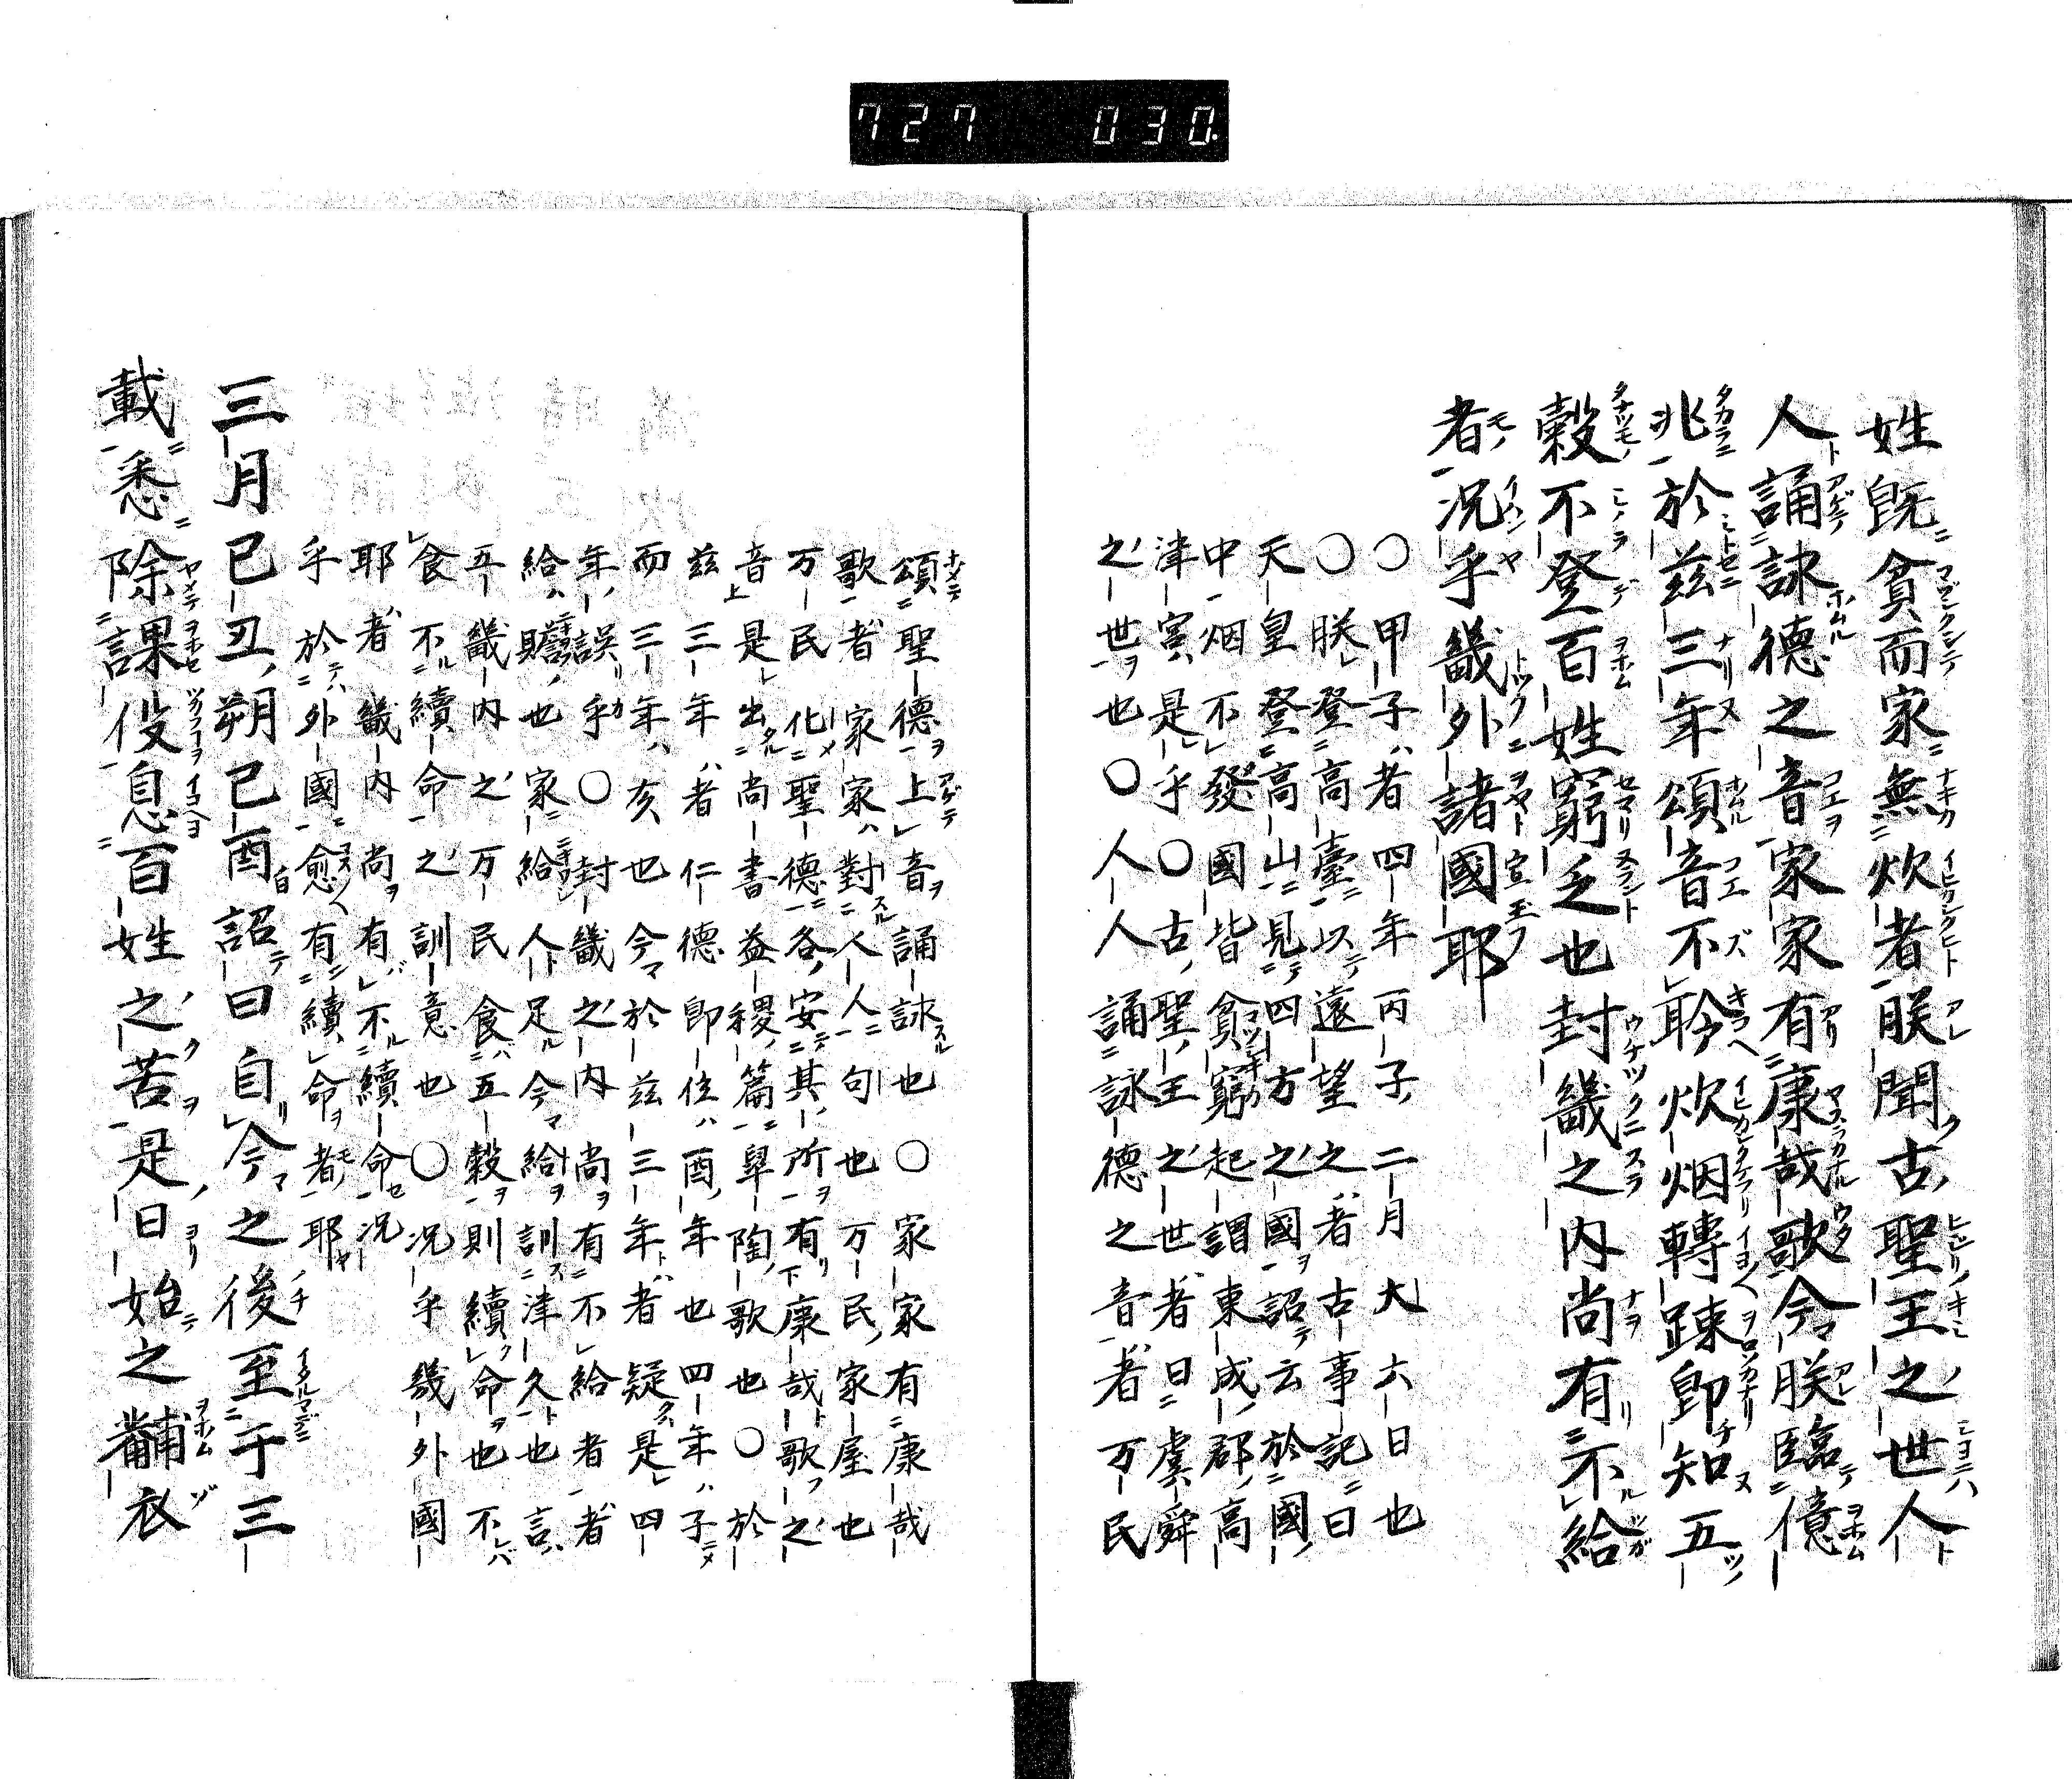 727 030.
姓既貧而家無炊者朕聞古聖王之世人
人誦詠德之音家家有康哉歌今朕臨億
兆於茲三年頌音不聆炊烟轉踈卽知五
穀不登百姓窮乏也封畿之內尚有不給
者況乎畿外諸國耶
○甲子者四年丙子二月大六日也
○朕登高臺以遠望之者古事記曰
天皇登高山見四方之國詔云於國
中烟不發國皆貧窮起謂東成郡高
津宮是乎○古聖王之世者曰虞舜
之世也○人人誦詠德之音者万民
頌聖德上音誦詠也○家家有康哉
歌者家家對人人句也万民家屋也
万民化聖德各安其所有康哉歌之
音是出尚書益稷篇皐陶歌也○於
茲三年者仁德卽位酉年也四年子
而三年亥也今於茲三年者疑是四
年誤乎○封畿之內尚有不給者者
給贍也家給人足今給訓津久也言
五畿內之万民食五穀則續命也不
食不續命之訓意也○況乎畿外國
耶者畿內尚有不續命況
乎於外國愈有續命者耶
三月己丑朔己酉詔曰自今之後至于三
載悉除課役息百姓之苦是日始之黼衣